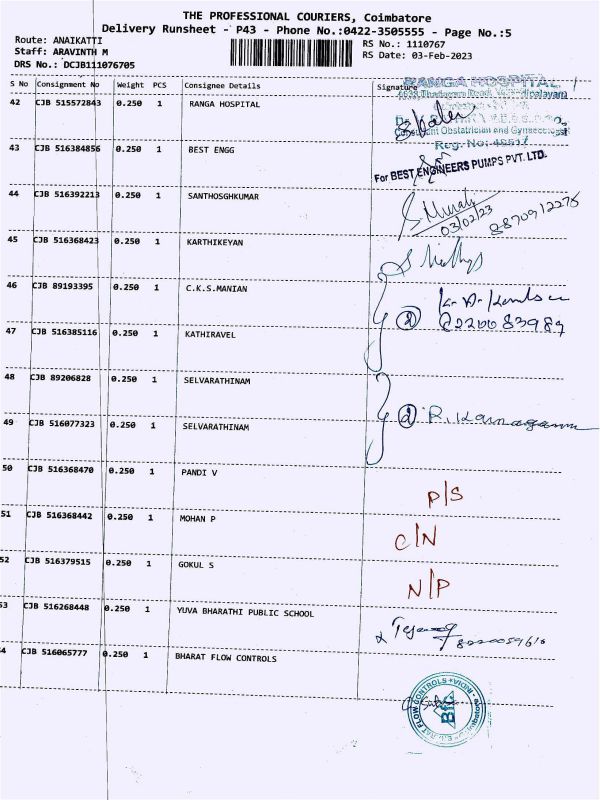 THE PROFESSIONAL COURIERS, Coimbatore
Delivery Runsheet - P43 - Phone No.:0422-3505555 - Page No.:5
Route: ANAIKATTI
RS No.: 1110767
Staff: ARAVINTH M
RS Date: 03-Feb-2023
DRS No.: DCJB111076705
S No Consignment No Weight PCS Consignee Details Signature
RANGA HOSPITAL
42 CJB 515572843 0.250 1 RANGA HOSPITAL
Consultant Obstatrician and Gynecologist
43 CJB 516384856 0.250 1 BEST ENGG
For BEST ENGINEERS PUMPS PVT. LTD.
44 CJB 516392213 0.250 1 SANTHOSGHKUMAR
S. Murali
03/02/23
8870912275
45 CJB 516368423 0.250 1 KARTHIKEYAN
46 CJB 89193395 0.250 1 C.K.S.MANIAN
②
47 CJB 516385116 0.250 1 KATHIRAVEL
48 CJB 89206828 0.250 1 SELVARATHINAM
② R.
49 CJB 516077323 0.250 1 SELVARATHINAM
50 CJB 516368470 0.250 1 PANDI V
P/S
51 CJB 516368442 0.250 1 MOHAN P
C/N
52 CJB 516379515 0.250 1 GOKUL S
N/P
53 CJB 516268448 0.250 1 YUVA BHARATHI PUBLIC SCHOOL
54 CJB 516065777 0.250 1 BHARAT FLOW CONTROLS
BHARAT FLOW CONTROLS
Bfc